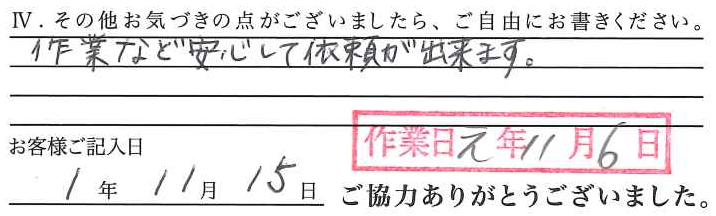 Ⅳ．その他お気づきの点がございましたら、ご自由にお書きください。
作業など安心して依頼が出来ます。
作業日元年11月6日
お客様ご記入日
1年11月15日
ご協力ありがとうございました。